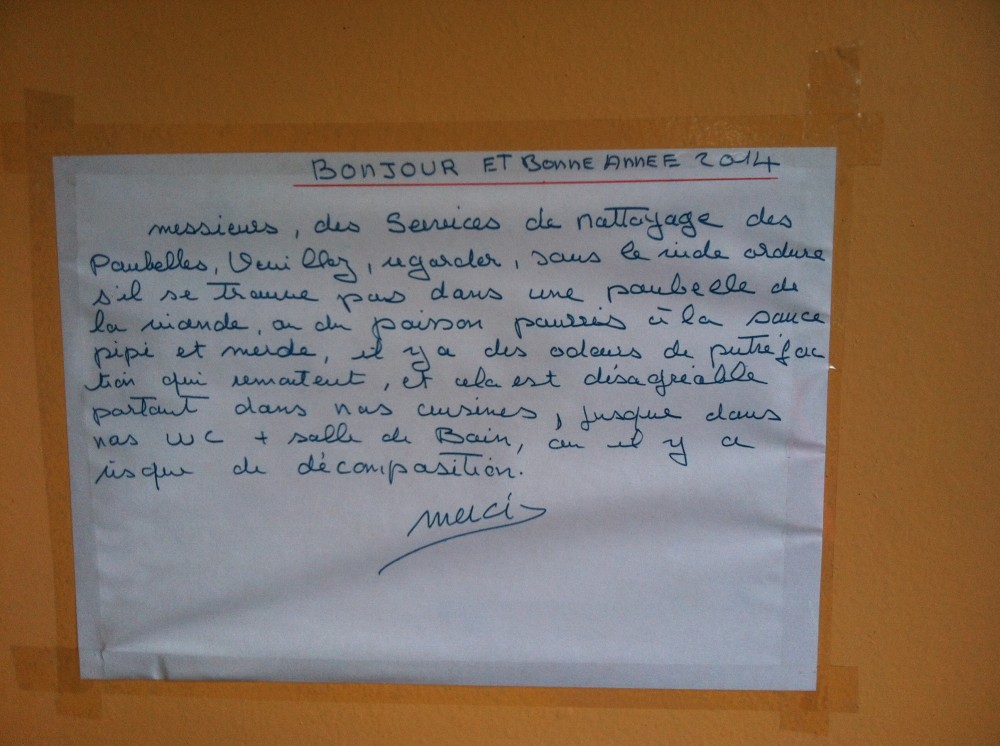 BONJOUR ET BONNE ANNEE 2014
messieurs, des Services de nattoyage des
Poubelles, Veuillez, regarder, sous le vide ordure
s'il se trouve pas dans une poubelle de
la viande, ou du poisson pourris à la sauce
pipi et merde, il y a des odeurs de putréfac
tion qui remontent, et cela est désagréable
partout dans nos cuisines, jusque dans
nos WC + salle de Bain, ou il y a
risque de décomposition.
merci